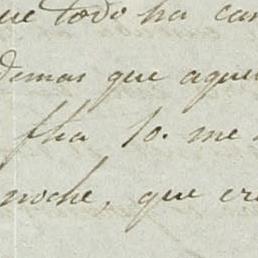 que todo ha can
demas que aque
fha 10. me
noche, que cre